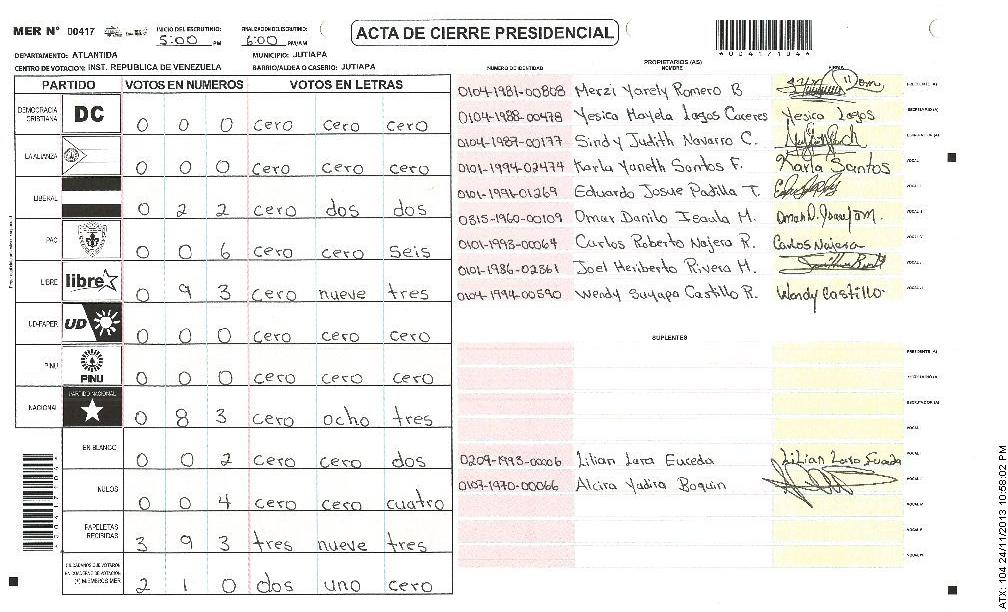 MER N° 00417 INICIO DEL ESCRUTINIO: 5:00 PM FINALIZACION ESCRUTINIO: 6:00 PM/AM ACTA DE CIERRE PRESIDENCIAL
DEPARTAMENTO: ATLANTIDA MUNICIPIO: JUTIAPA
CENTRO DE VOTACION: INST. REPUBLICA DE VENEZUELA BARRIO/ALDEA O CASERIO: JUTIAPA
PARTIDO VOTOS EN NUMEROS VOTOS EN LETRAS
DEMOCRACIA CRISTIANA DC 0 0 0 cero cero cero
LA ALIANZA 0 0 0 cero cero cero
LIBERAL 0 2 2 cero dos dos
PAC 0 0 6 cero cero seis
LIBRE libre 0 9 3 cero nueve tres
UD-FAPER UD 0 0 0 cero cero cero
PINU PINU 0 0 0 cero cero cero
NACIONAL PARTIDO NACIONAL 0 8 3 cero ocho tres
EN BLANCO 0 0 2 cero cero dos
NULOS 0 0 4 cero cero cuatro
PAPELETAS RECIBIDAS 3 9 3 tres nueve tres
CIUDADANOS QUE VOTARON EN CUADERNO DE VOTACION (+) MIEMBROS MER 2 1 0 dos uno cero
*004171044*
PROPIETARIOS (AS)
NUMERO DE IDENTIDAD NOMBRE FIRMA
0104-1981-00808 Merzi Yarely Romero B PRESIDENTE (A)
0104-1988-00478 Yesica Mayela Lagos Caceres Yesica Lagos SECRETARIO (A)
0104-1987-00177 Sindy Judith Navarro C. ESCRUTADOR (A)
0101-1994-02474 Karla Yaneth Santos F. Karla Santos
0101-1991-01269 Eduardo Josue Padilla T.
0315-1960-00109 Omar Danilo Isaula M.
0101-1993-00064 Carlos Roberto Najera R. Carlos Najera
0101-1986-02361 Joel Heriberto Rivera M.
0104-1994-00590 Wendy Suyapa Castillo R. Wendy Castillo
SUPLENTES
PRESIDENTE (A)
SECRETARIO (A)
ESCRUTADOR (A)
0209-1993-00006 Lilian Lara Euceda
0107-1970-00066 Alcira Yadira Boquin
ATX: 104 24/11/2013 10:58:02 PM